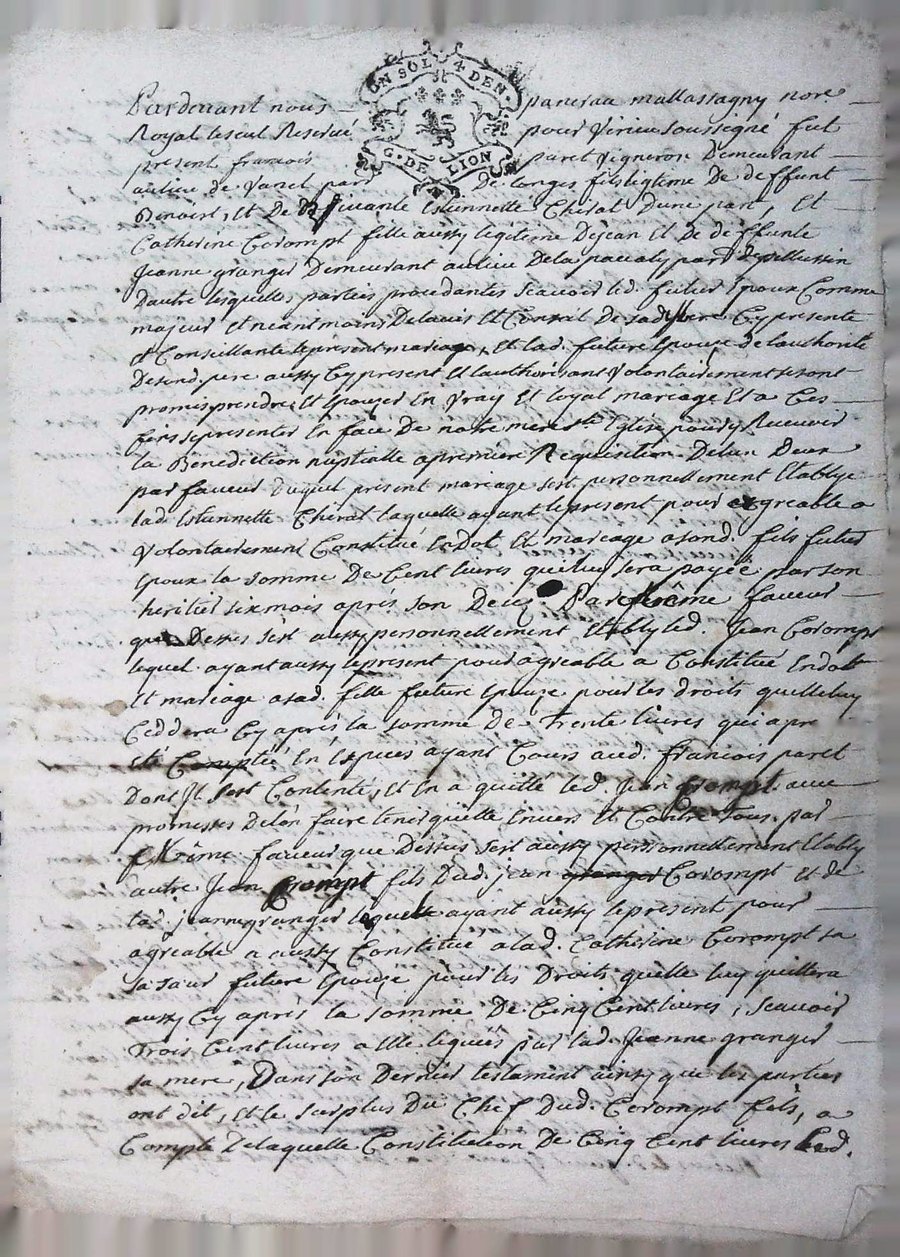 UN SOL 4 DEN.
G. DE LION
Pardevant nous pancrau mallassagny nore.
Royal Reservé pour Virieu soussigné fut
present francois paret vigneron Demeurant
au lieu de Vanel parr De longes fils legitime De deffunt
Benoist, et De vivante Estiennette Cheral Dune part, Et
Catherine Corompt fille aussy legitime Dejean Et de deffunte
Jeanne granger Demeurant au lieu Dela parr De pellussin
Dautre lesquelles parties procedantes scavoir led. futur Epoux Comme
majeur et neantmoins Delavis Et Conseil De sa mere Cy presente
et Conseillante lepresent mariage, et lad. future Epouze de lauthorité
Desond. pere aussy Cy present Et lauthorisant Volontairement se sont
promis prendre et Epouzer En vray Et loyal mariage Et a Ces
fins se presenter En face De notre mere ste Eglise pour y Recevoir
la Benediction nuptialle a premiere Requisition De lun Deux
par faveur duquel present mariage sest personnellement Etablye
lad. Estiennette Cheral laquelle ayant lepresent pour agreable a
volontairement Constitué En dot Et mariage a sond. fils futur
Epoux la somme De Cent livres quil luy sera payé par son
heritier six mois après son Decez. Par même faveur
que Dessus sest aussy personnellement Etably led. Jean Corompt
lequel ayant aussy lepresent pour agreable a Constitué En dot
Et mariage a sad. fille future Epouze pour les droits quelle luy
Ceddera Cy après la somme De trente livres qui a pre
eté Comptée En Especes ayant Cours aud. francois paret
Dont Il sest Contenté, et En a quitté led. Jean Crompt avec
promesses De len faire tenir quitte Envers Et Contre tous. par
même faveur que Dessus sest aussy personnellement Etably
autre Jean Crompt fils Dud. jean granger Corompt et de
lad. jeanne granger lequel ayant aussy lepresent pour
agreable a aussy Constitué a lad. Catherine Corompt sa
sa sœur future Epouze pour les Droits quelle luy quittera
aussy Cy après la somme De Cinq Cent livres, Scavoir
Trois Cent livres a Elle leguées par lad. Jeanne granger
sa mere, Dans son Dernier testament ainsy que les parties
ont dit, et le surplus Du Chef Dud. Corompt fils, a
Compte De laquelle Constitution De Cinq Cent livres Led.